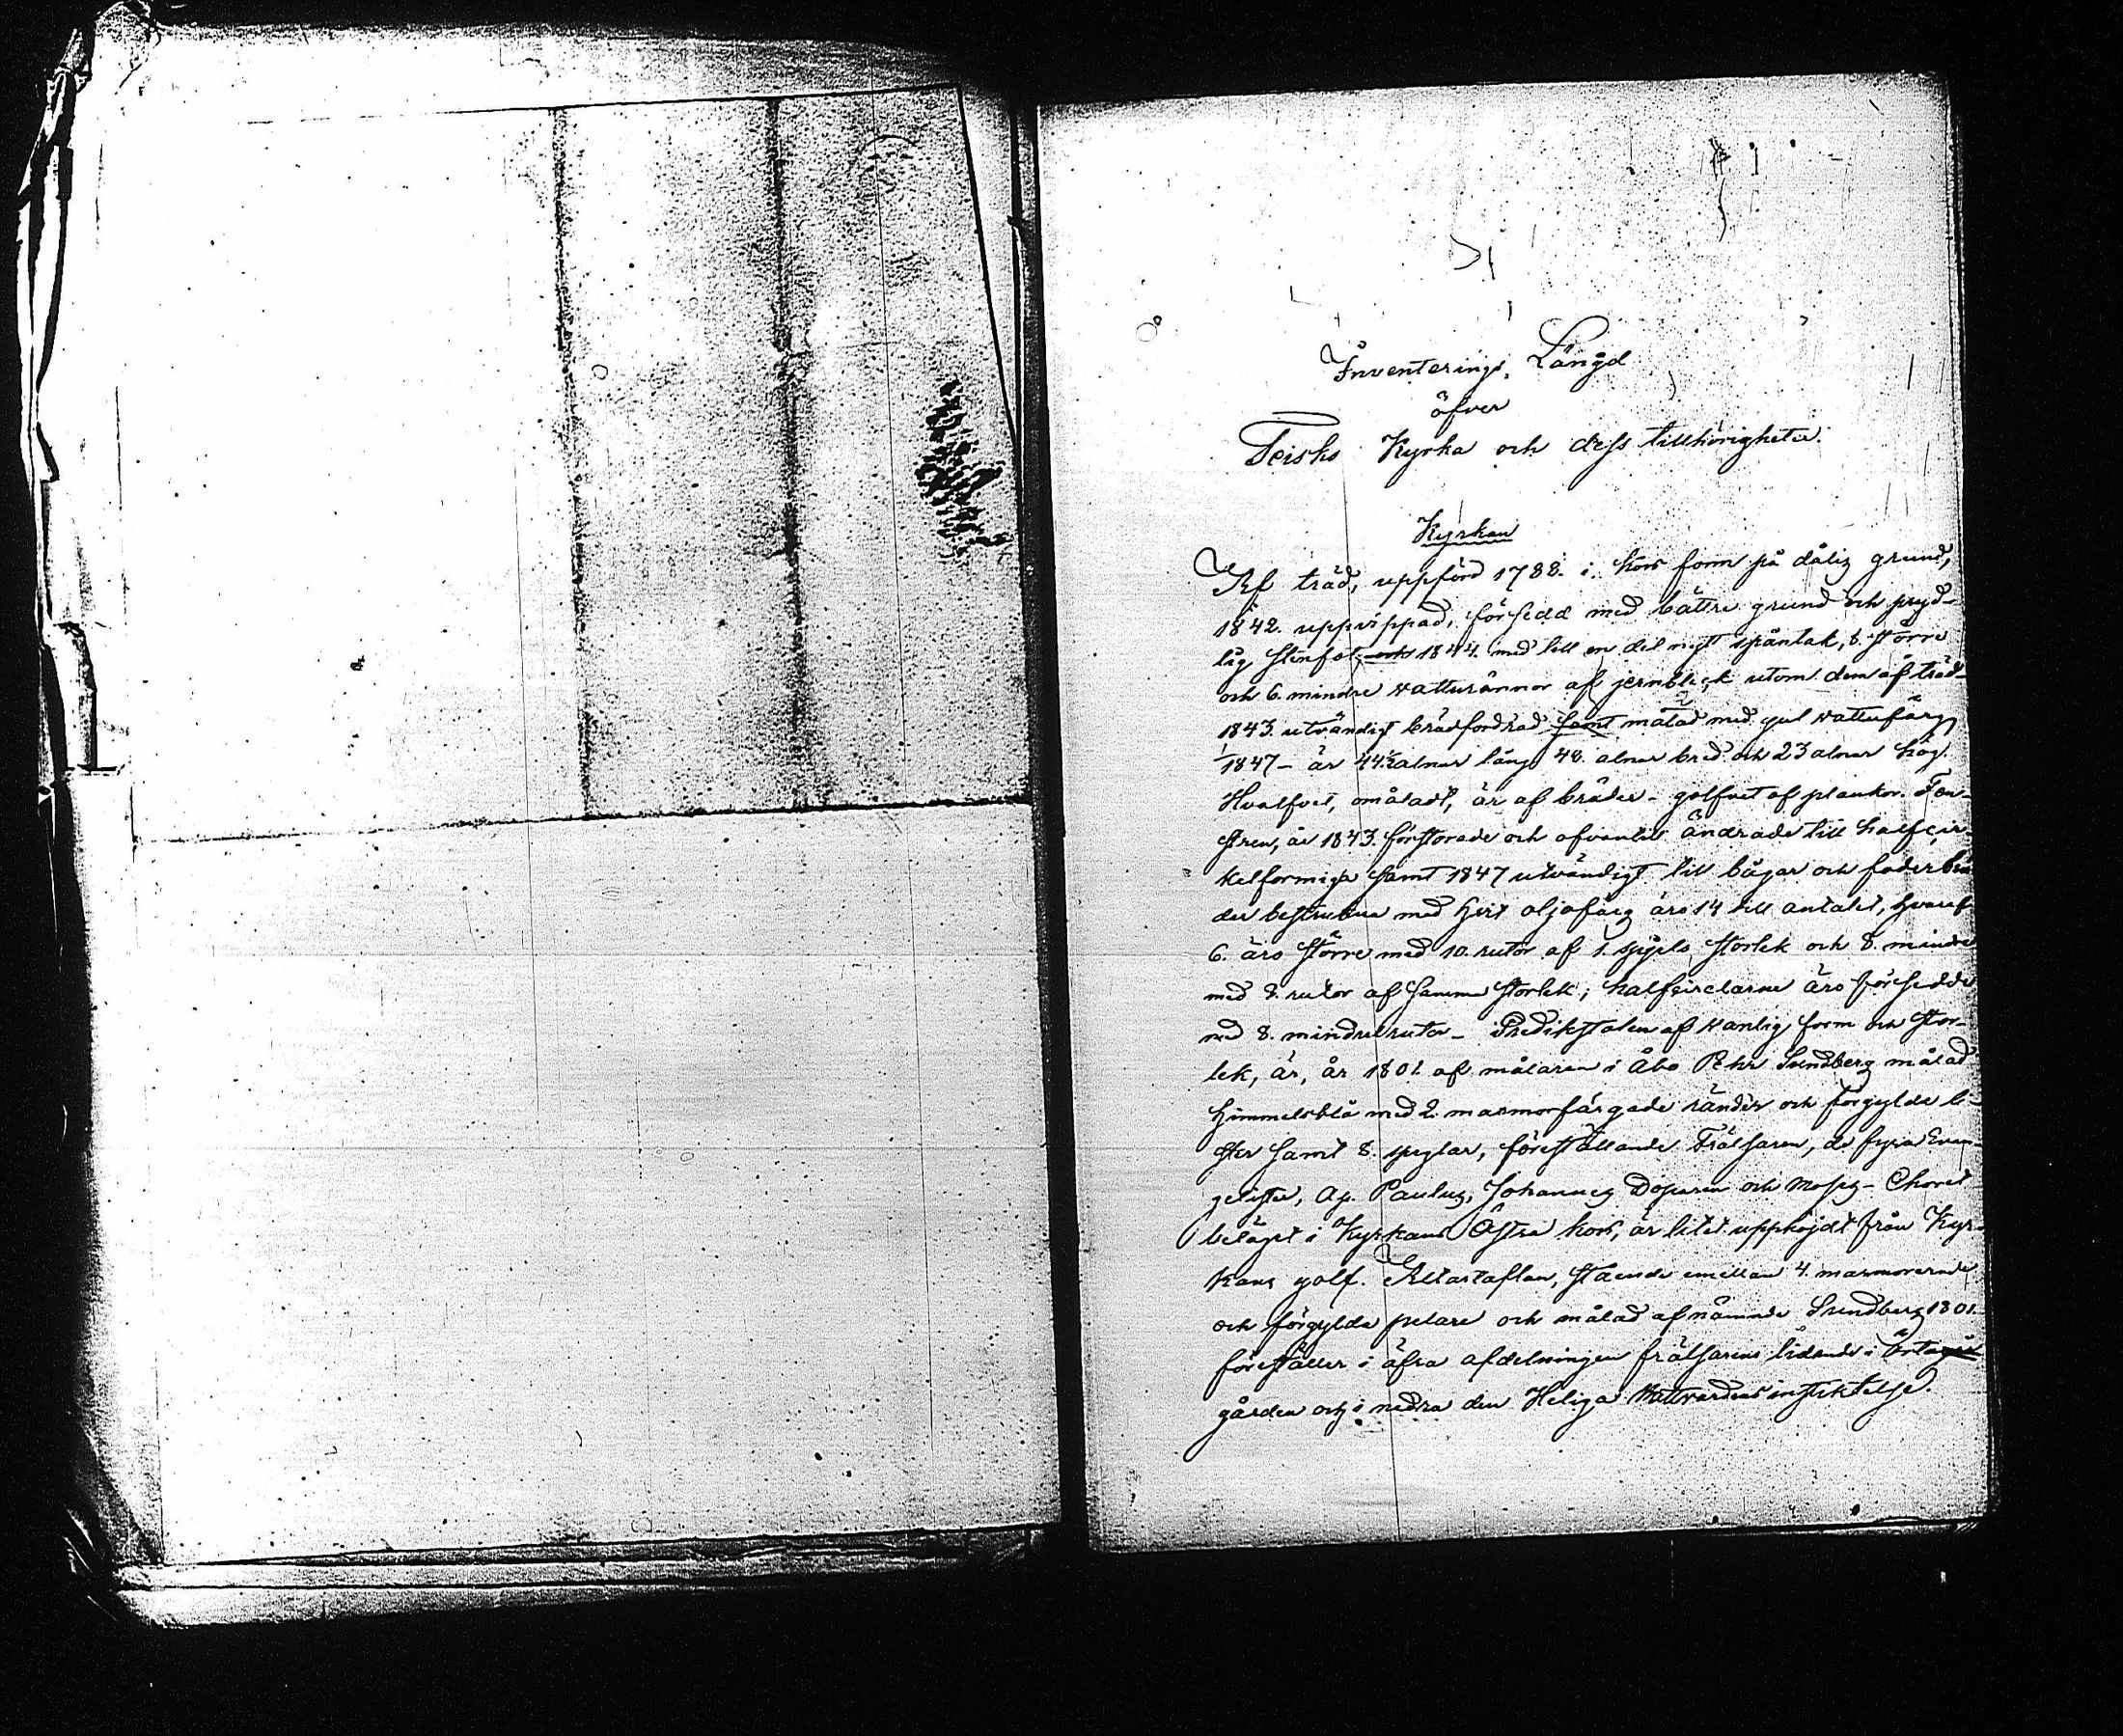 Inventerings Längd
öfver
Teisko Kyrka och dess tillhörigheter.
Kyrkan
Af träd, uppförd 1788. i kors form på dålig grund,
1842. uppvippad, försedd med bättre grund och pryd-
lig stenfot, och 1844. med till en del nytt spåntak, 8. större
och 6. mindre vatturännor af jernbleck utom dem af träd
1843. utvändigt brädfodrad samt målad med gul vattufärg
1847 - är 44½ alnar lång 48. alnar bred och 23 alnar hög.
Hvalfvet, omåladt, är af bräder - golfvet af plankor. Fen-
stren, år 1843. förstorade och ofvantill ändrade till halfcir-
kelformiga samt 1847 utvändigt till bågar och foder
der bestrukna med hvit oljofärg äro 14 till antalet, hvaraf
6. äro större med 10. rutor af 1. storlek och 8. mindre
med 8. rutor af samma storlek; halfcirclarne äro försedde
med 8. mindre rutor - Predikstolen af vanlig form och stor-
lek, är, år 1801. af målaren i Åbo Pehr Sundberg målad
himmelsblå med 2. marmorfärgade ränder och förgylda li-
ster samt 8. speglar, föreställande Frälsaren, de fyra Evan-
gelister, Ap. Paulus, Johannes Döparen och Moses - Choret
beläget i Kyrkans Östra kors, är litet upphöjdt från Kyr-
kans golf. Altartaflan, stående emellan 4. marmorerade
och förgylda pelare och målad af nämnde Sundberg 1801.
föreställer i öfra afdelningen frälsarens lidande i Örtagår
gården och i nedra den Heliga Nattvardens instiktelse.